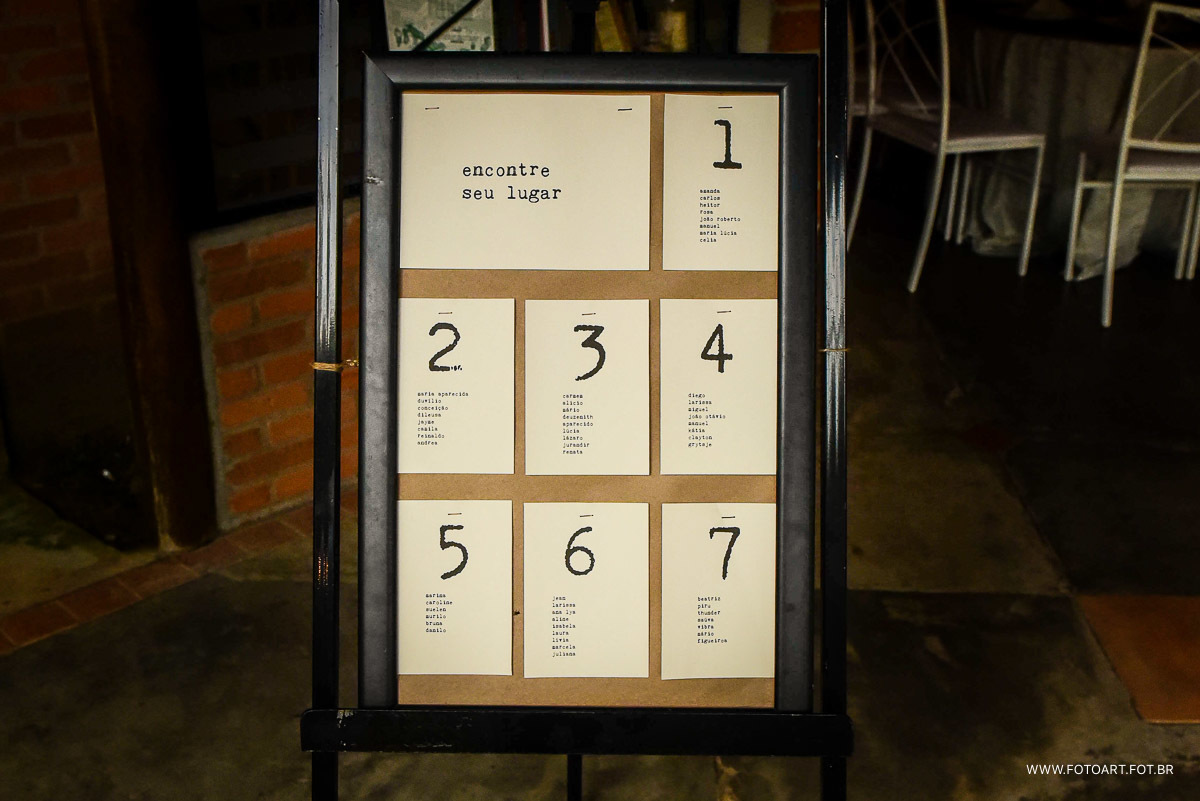 encontre
seu lugar
1
amanda
carlos
heitor
rosa
joão roberto
manuel
maria lúcia
celia
2
maria aparecida
duvilio
conceição
dileusa
jayme
camila
reinaldo
andrea
3
carmem
alicio
mário
deuzenith
aparecido
lúcia
lázaro
jurandir
renata
4
diego
larissa
miguel
joão otávio
manuel
kátia
clayton
5
marina
caroline
suelen
murilo
bruna
danilo
6
jean
larissa
ana lya
aline
isabela
laura
livia
marcela
juliana
7
beatriz
piru
thunder
saúva
vibra
mário
figueiroa
WWW.FOTOART.FOT.BR